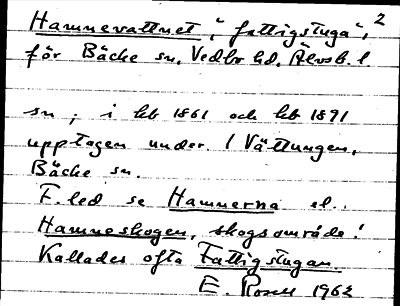 Hamnevattnet, "fattigstuga", 2
för Bäcke sn, Vedbo hd, Älvsb. l.
sn, i kb 1861 och kb 1891
upptagen under 1 Vättungen,
Bäcke sn.
F. led se Hamnerna el.
Hamneskogen, skogsområde!
Kallades ofta Fattigstugan.
E. Rosell 1962